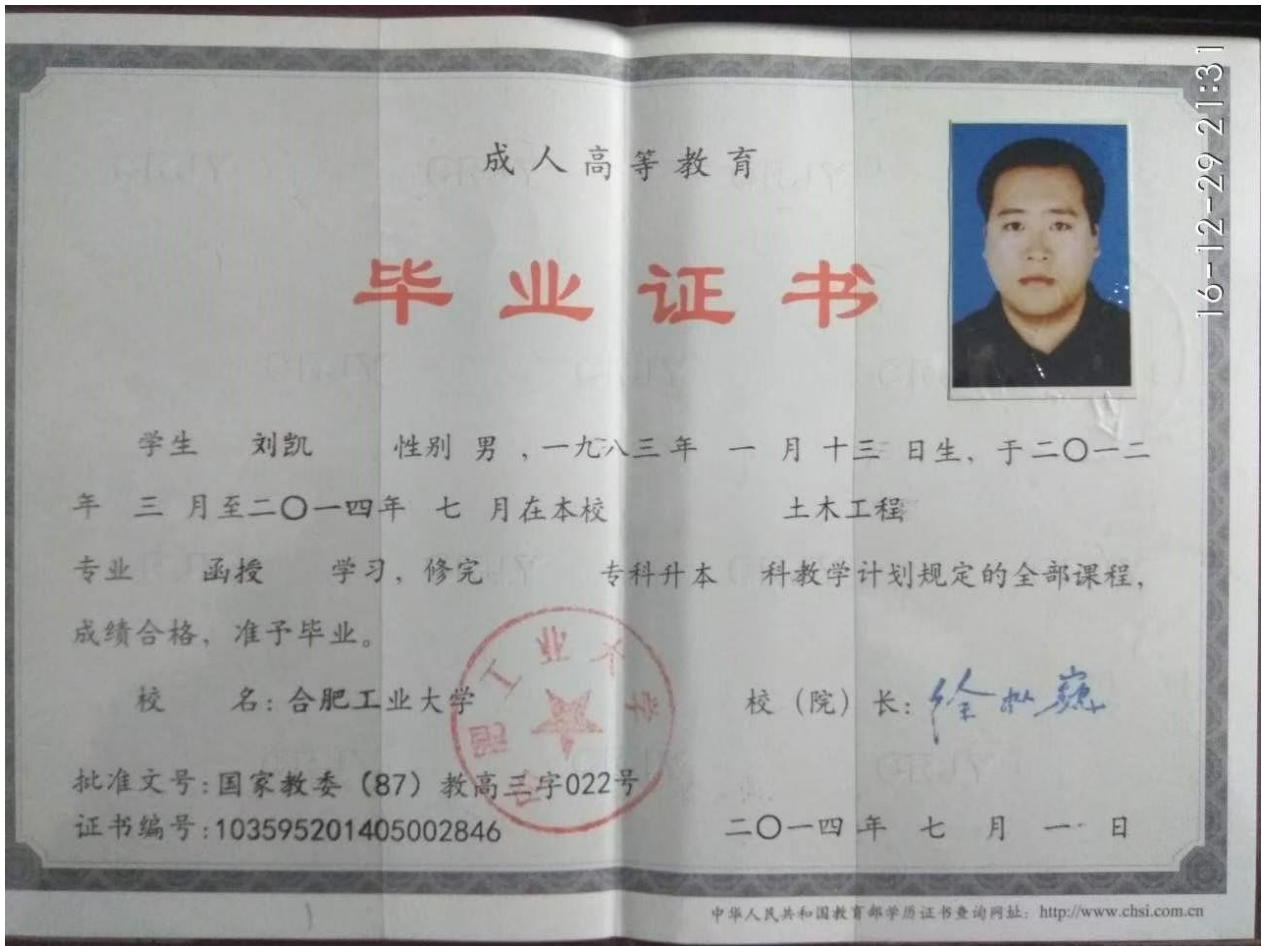 成人高等教育
16-12-29 21:31
毕业证书
学生 刘凯 性别 男 ,一九八三年 一 月 十三 日生, 于二〇一二
年 三 月至二〇一四年 七 月在本校 土木工程
专业 函授 学习, 修完 专科升本 科教学计划规定的全部课程,
成绩合格, 准予毕业。
校 名: 合肥工业大学 校 (院) 长: 徐枞巍
合肥工业大学
批准文号: 国家教委 (87) 教高三字022号
证书编号: 103595201405002846 二〇一四年 七 月 一 日
中华人民共和国教育部学历证书查询网址: http://www.chsi.com.cn